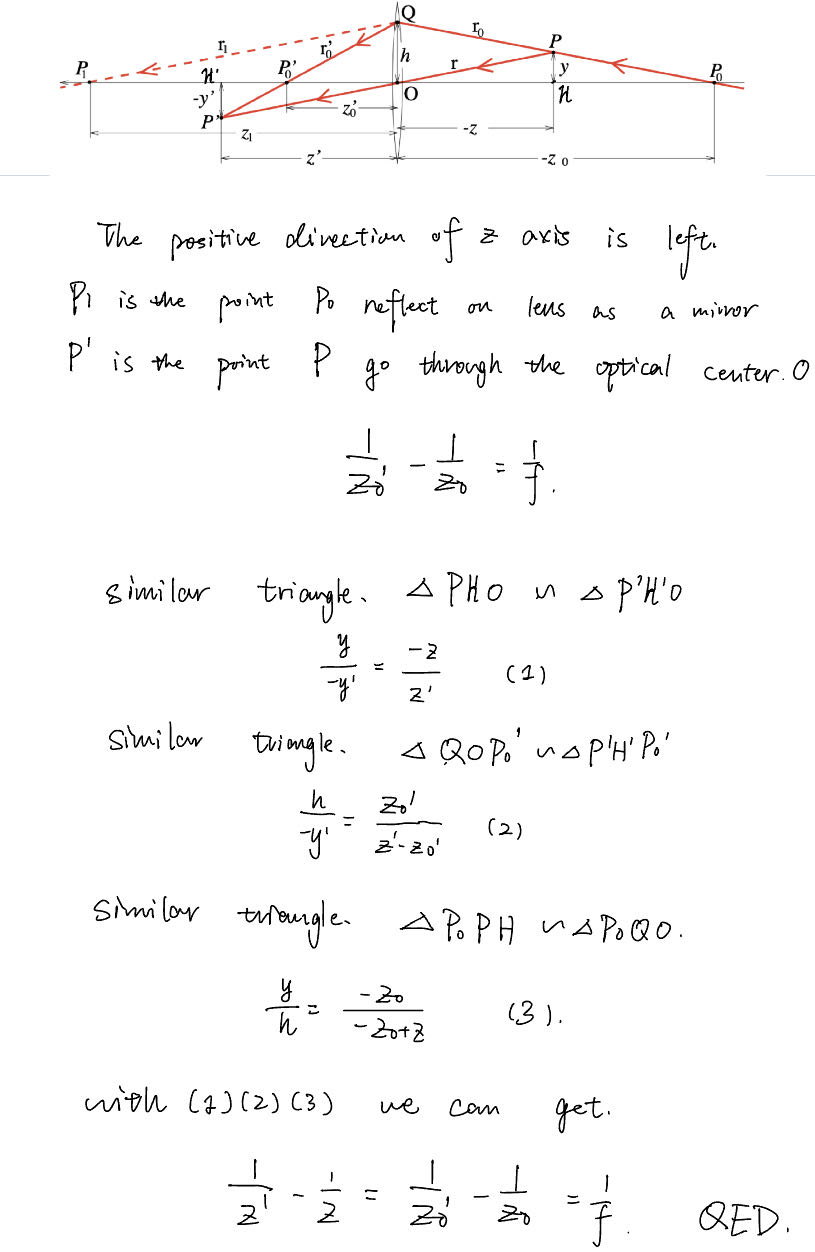 Q
r₁
r₀'
r₀
P₁
H'
P₀'
h
r
P
y
P₀
-y'
O
H
P'
z₀'
z₁
-z
z'
-z₀
The positive direction of z axis is left.
P₁ is the point P₀ reflect on lens as a mirror
P' is the point P go through the optical center. O
1/z₀' - 1/z₀ = 1/f.
similar triangle. △PHO ∽ △P'H'O
y/-y' = -z/z' (1)
similar triangle. △QOP₀' ∽ △P'H'P₀'
h/-y' = z₀'/z'-z₀' (2)
similar triangle. △P₀PH ∽ △P₀QO.
y/h = -z₀/-z₀+z (3).
with (1)(2)(3) we can get.
1/z' - 1/z = 1/z₀' - 1/z₀ = 1/f. QED.